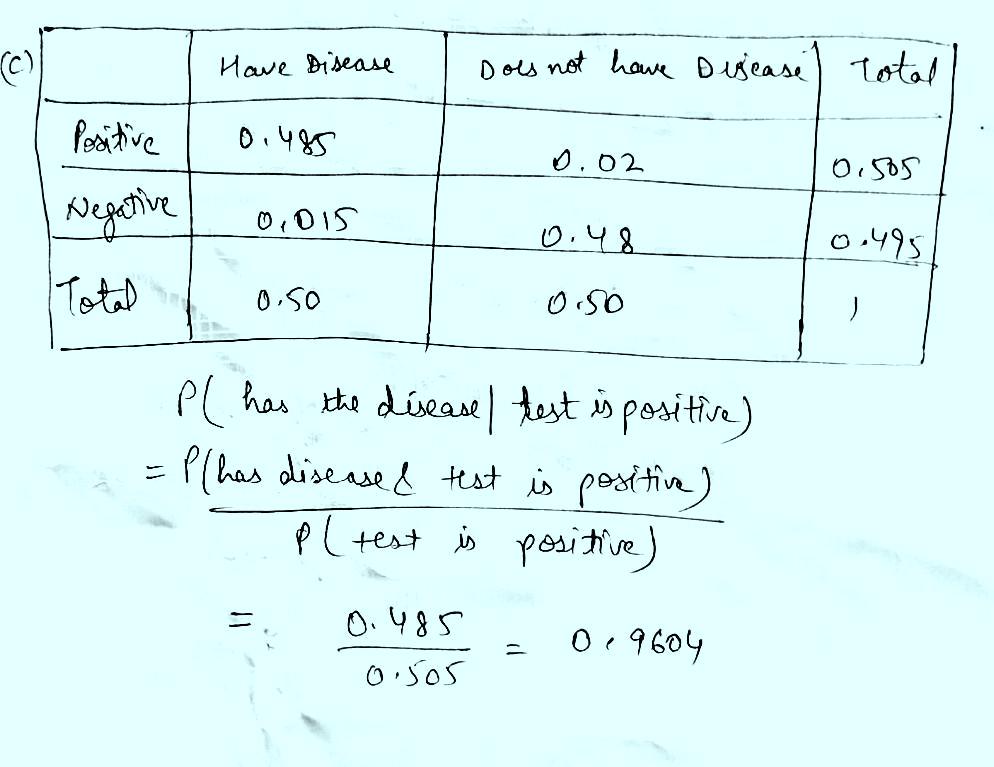 (C) Have Disease Does not have Disease Total
Positive 0.485 0.02 0.505
Negative 0.015 0.48 0.495
Total 0.50 0.50 1
P( has the disease | test is positive)
= P(has disease & test is positive)
P( test is positive)
= 0.485
0.505
= 0.9604